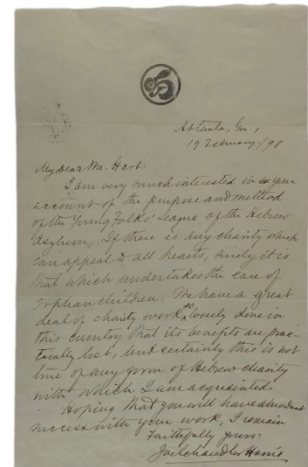 Atlanta, Ga.,
19 February/98
My Dear Mr. Hart:
I am very much interested in your
account of the purpose and method
of the Young Folks' League of the Hebrew
Asylum. If there is any charity which
can appeal to all hearts, surely it is
that which undertakes the care of
orphan children. We have a great
deal of charity work so loosely done in
this country that its benefits are prac-
tically lost, but certainly this is not
true of any form of Hebrew charity
with which I am acquainted.
Hoping that you will have abundant
success with your work, I remain
Faithfully yours:
Joel Chandler Harris.